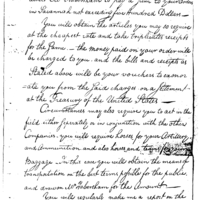 in Savannah not exceeding five hundred Dollars.
You will obtain the articles you may require
at the cheapest rate and take duplicate receipts
for the Same — the money paid on your order will
be charged to you and the bill and receipts as
Stated above will be your vouchers to exonerate
you from the Said charges on a settlement
at the Treasury of the United States —
Circumstances may also require you to act in the
field either separately or in conjunction with the other
Companies. you will require horses for your Artillery
and ammunition and also horses and
Baggage — in this case you will obtain the means of
transportation on the best terms possible for the public,
and draw on for the Amount —
You will regularly make me a report on the